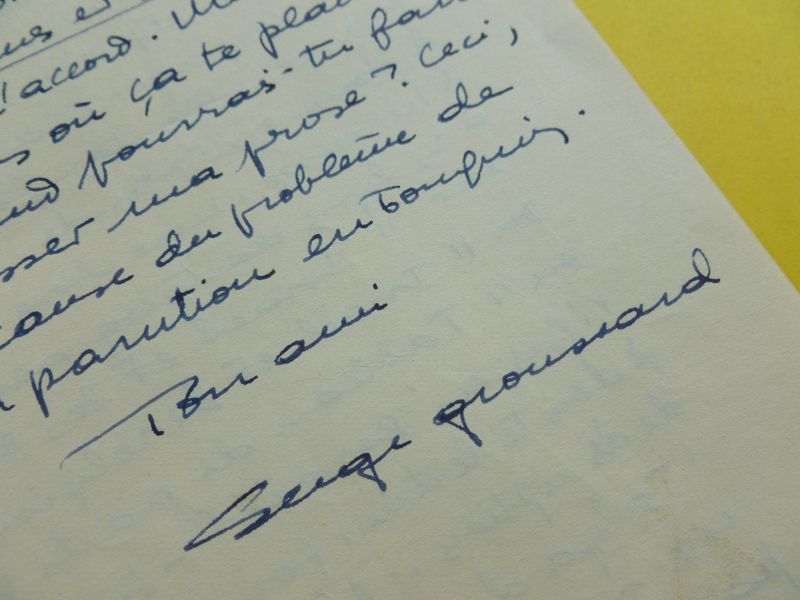 us et
d'accord. M
où ça te plai
pourrais-tu fai
sser ma prose ? Ceci,
cause du problème de
parution en bouquin.
Ton ami
Serge Groussard